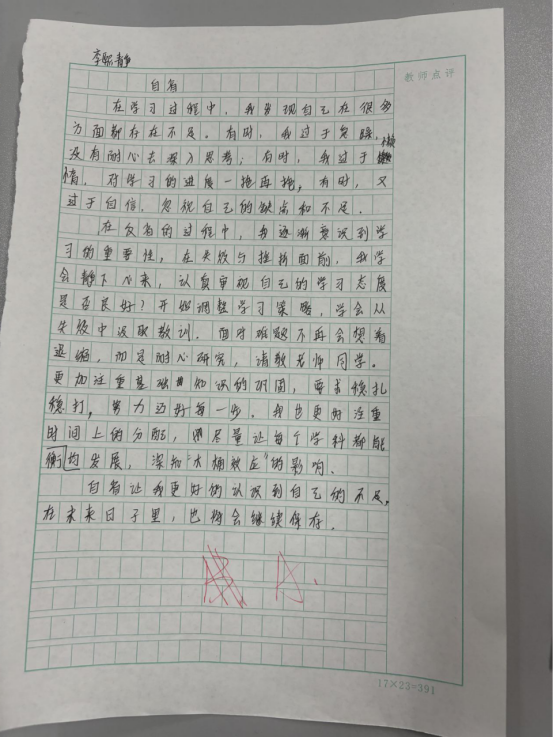 教师点评
自省
在学习过程中，我发现自己在很多
方面都存在不足。有时，我过于急躁，
没有耐心去深入思考；有时，我过于懒
惰，对学习的进度一拖再拖，有时，又
过于自信，忽视自己的缺点和不足．
在反省的过程中，我逐渐意识到学
习的重要性，在失败与挫折面前，我学
会静下心来，认真审视自己的学习态度
是否良好？开始调整学习策略，学会从
失败中汲取教训．面对难题不再会想着
退缩，而是耐心研究，请教老师同学。
更加注重基础知识的巩固，要求稳扎
稳打，努力迈好每一步．我也更好注重
时间上的分配，尽量让每个学科都能
衡均发展，深知“木桶效应”的影响．
自省让我更好的认识到自己的不足，
在未来日子里，也将会继续保存．
17×23=391